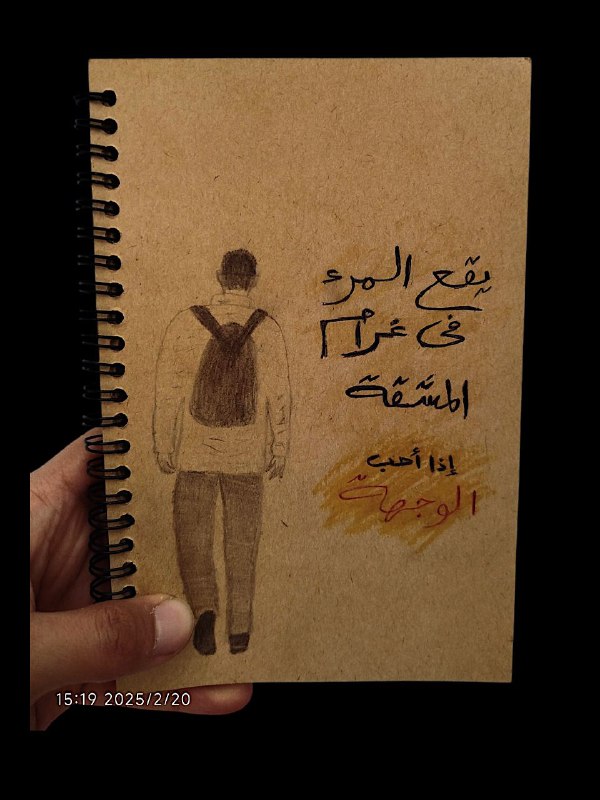 يقع المرء
في غرام
المشقة
إذا أحب
الوجهة
15:19 2025/2/20